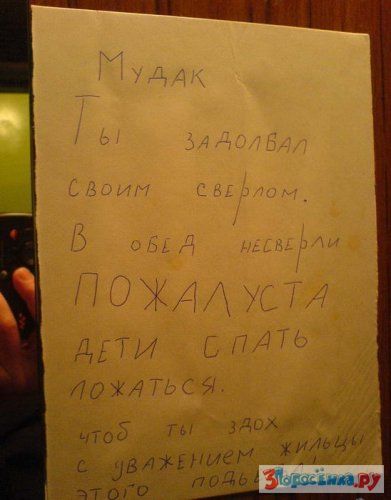 Мудак
Ты задолбал
своим сверлом.
В обед несверли
ПОЖАЛУСТА
дети спать
ложаться.
чтоб ты здох
с уважением жильцы
этого
3Поросёнка.ру